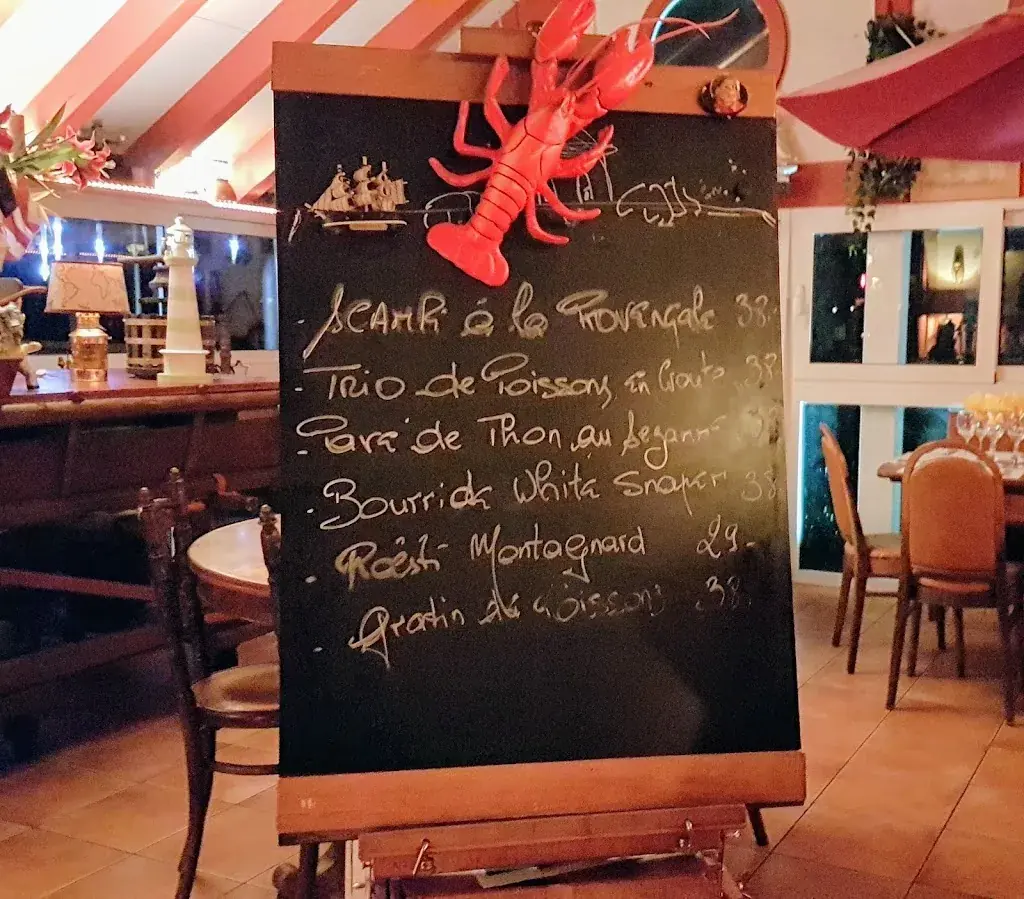 - SCAMPi à la Provençale 38.-
- Trio de Poissons en Croute 38
- Pavé de Thon au Sezamme 38
- Bourride White Snaper 38
- Roësti Montagnard 29.-
- Gratin de Poissons 38.